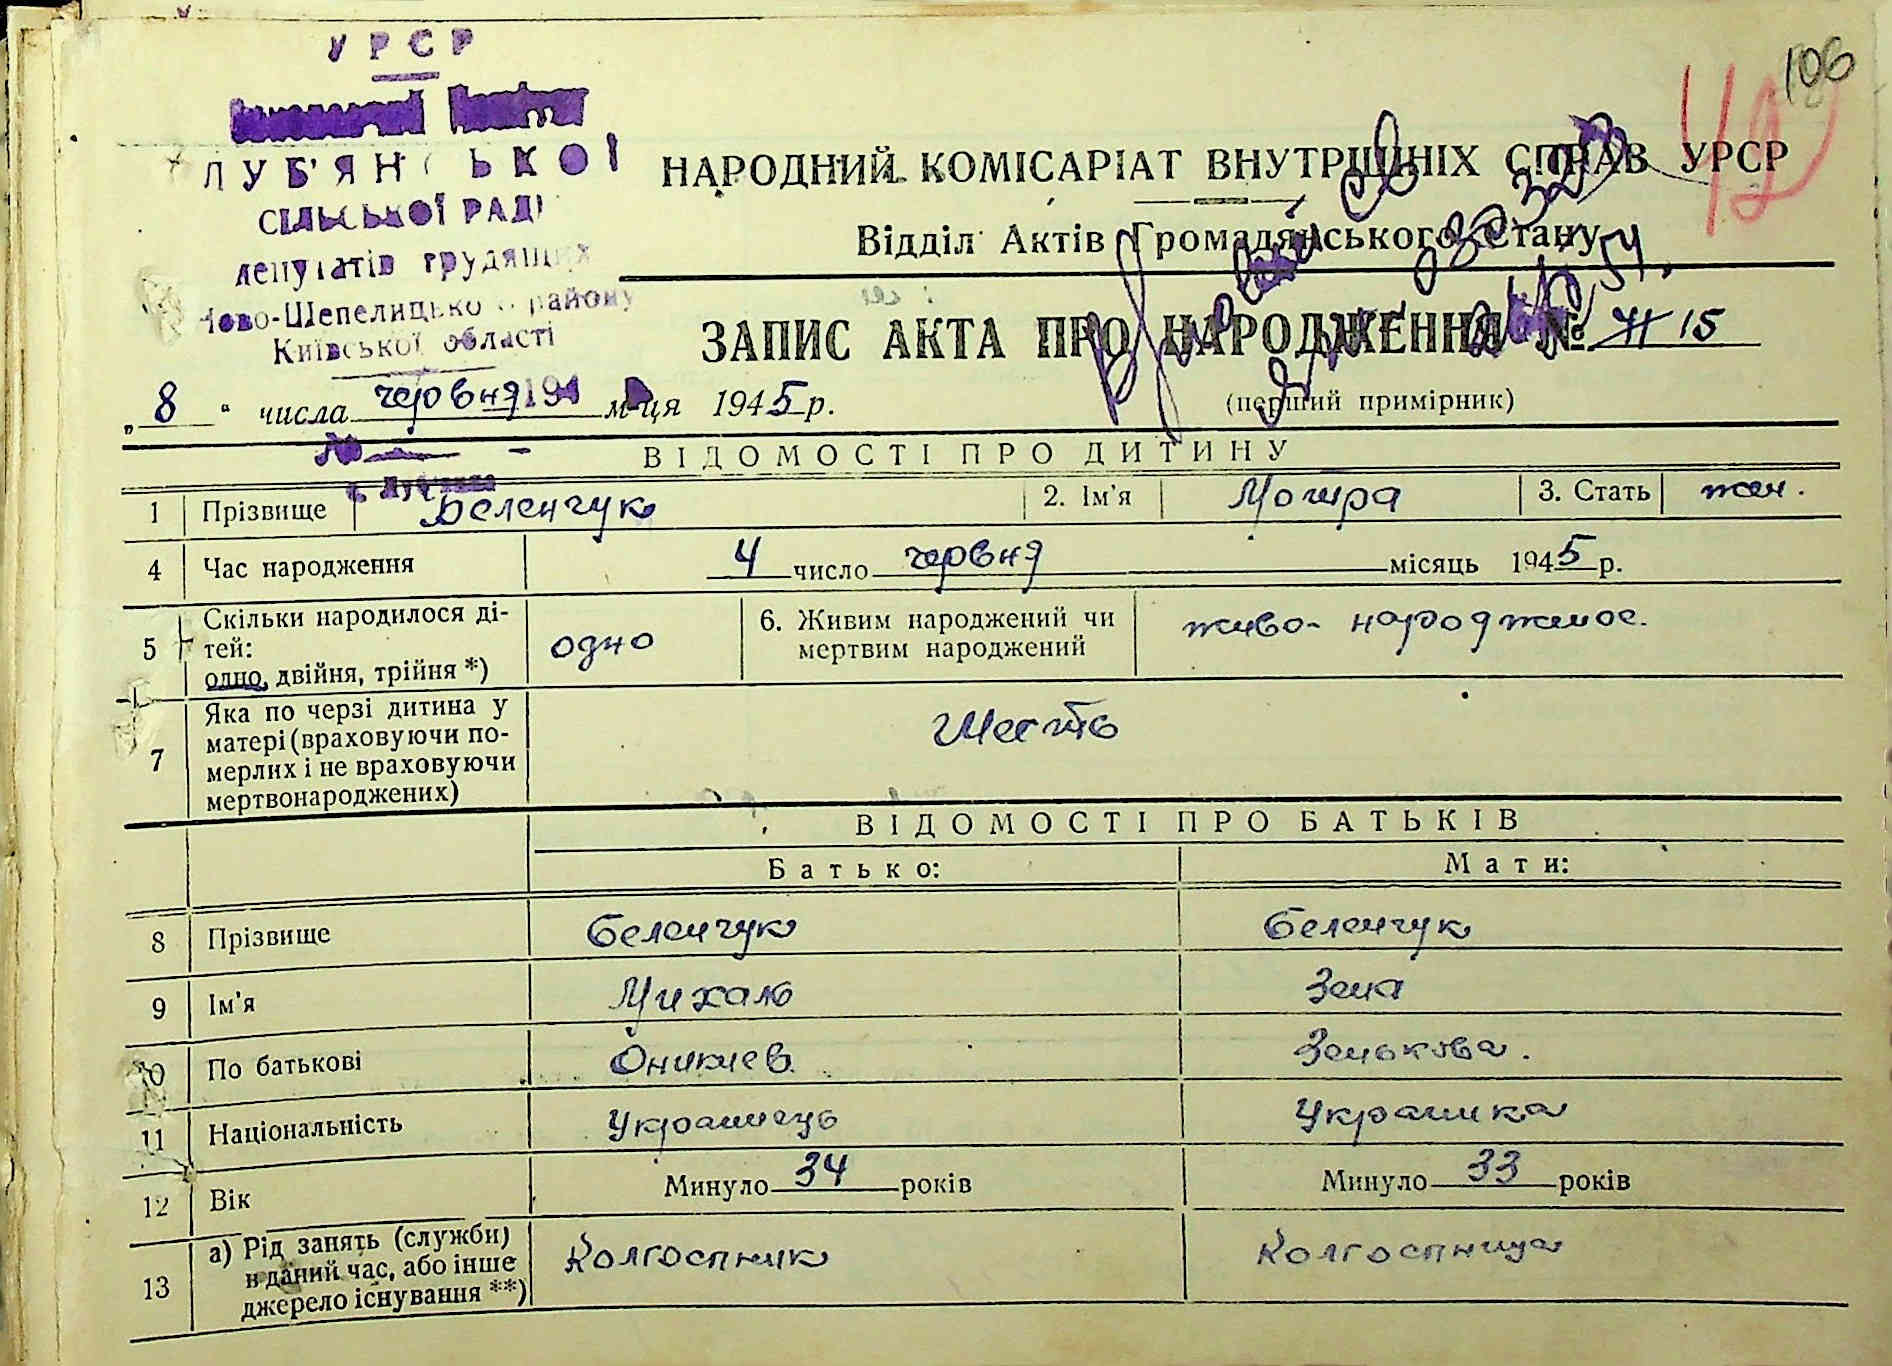 106
42
УРСР
Виконавчий Комітет
ЛУБ'ЯНСЬКОЇ
СІЛЬСЬКОЇ РАДИ
депутатів трудящих
Ново-Шепелицького району
Київської області
194
№
с. Луб'янка
НАРОДНИЙ КОМІСАРІАТ ВНУТРІШНІХ СПРАВ УРСР
Відділ Актів Громадянського Стану
ЗАПИС АКТА ПРО НАРОДЖЕННЯ № 15
„ 8 " числа червня м-ця 1945 р.
(перший примірник)
ВІДОМОСТІ ПРО ДИТИНУ
1 Прізвище Беленчук 2. Ім'я Мотря 3. Стать жен.
4 Час народження 4 число червня місяць 1945 р.
5 Скільки народилося ді-
тей:
одно, двійня, трійня *)
одно
6. Живим народжений чи
мертвим народжений
живо-народженое.
7 Яка по черзі дитина у
матері (враховуючи по-
мерлих і не враховуючи
мертвонароджених)
Шесть
ВІДОМОСТІ ПРО БАТЬКІВ
Батько: Мати:
8 Прізвище Беленчук Беленчук
9 Ім'я Михаль Зена
10 По батькові Оникиев Зенькова.
11 Національність Українець Українка
12 Вік Минуло 34 років Минуло 33 років
13 а) Рід занять (служби)
в даний час, або інше
джерело існування **)
Колгоспник Колгоспница